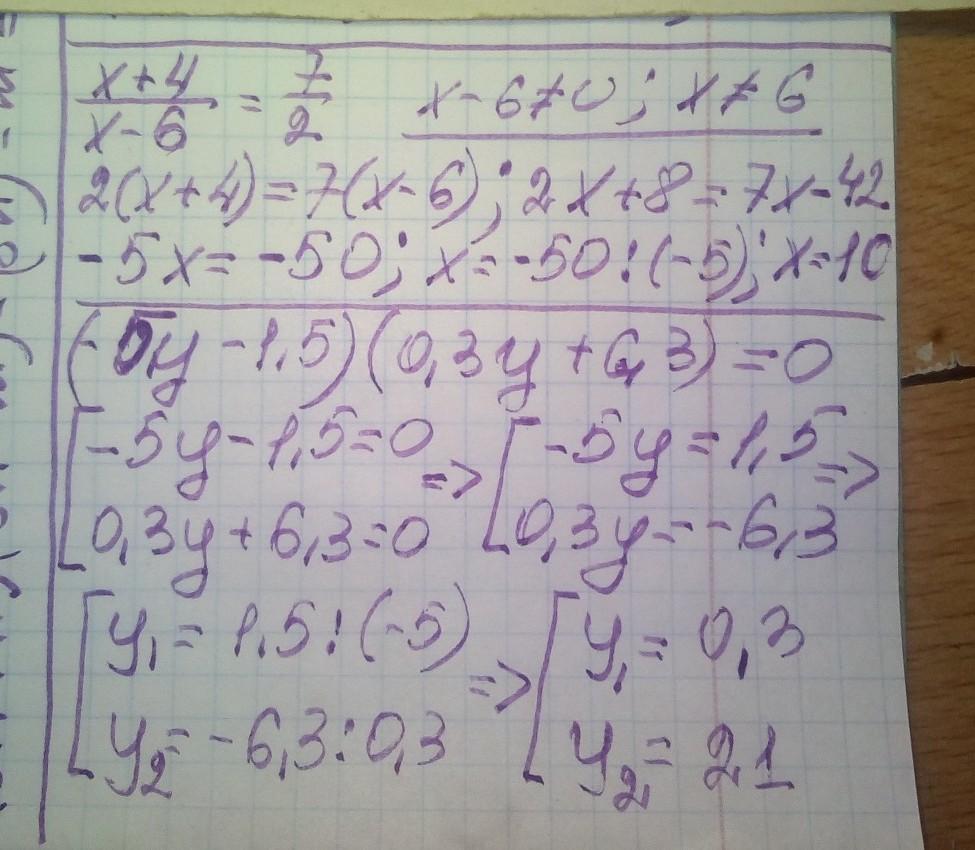 x+4/x-6 = 7/2 x-6≠0; x≠6
2(x+4)=7(x-6); 2x+8=7x-42
-5x=-50; x=-50:(-5); x=10
(-5y-1,5)(0,3y+6,3)=0
[-5y-1,5=0 => [-5y=1,5 =>
0,3y+6,3=0 0,3y=-6,3
[y₁=1,5:(-5) => [y₁=0,3
y₂=-6,3:0,3 y₂=21